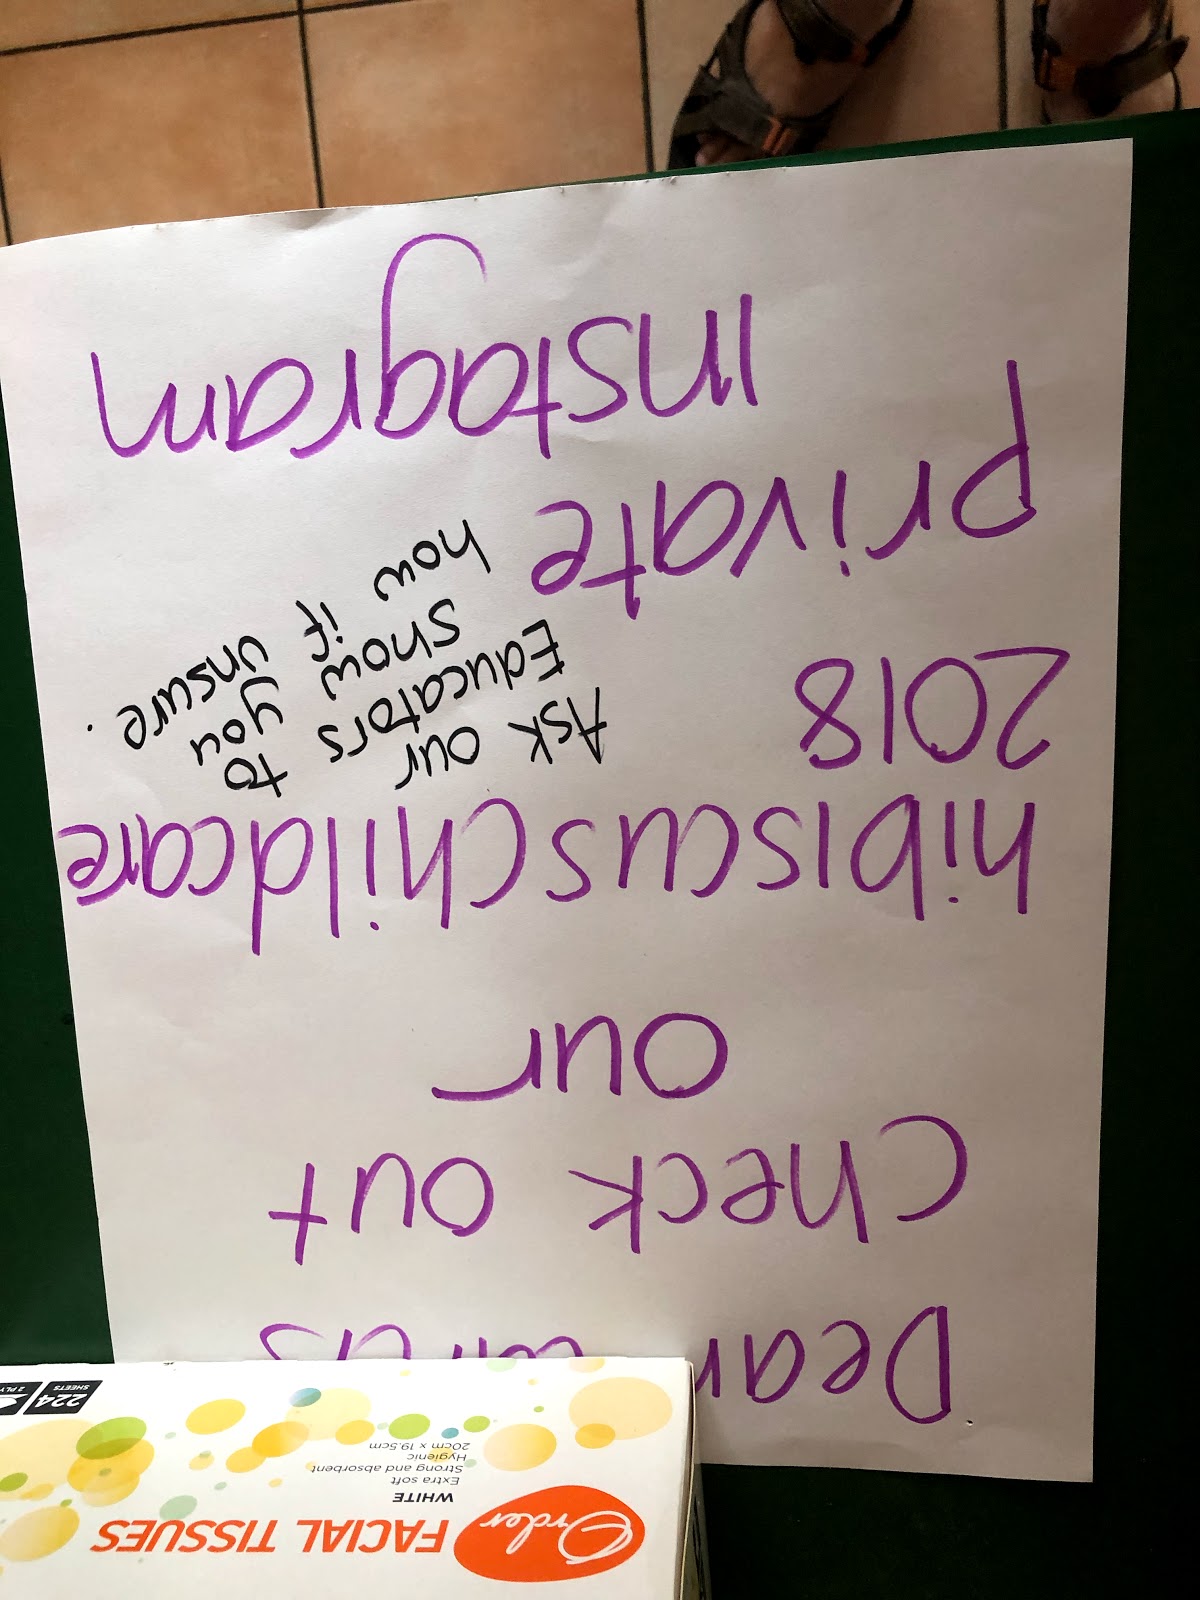 Dear
Check out
our
hibiscuschildcare
2018
private
Instagram
Ask our
Educators to
show you
how if unsure.
Order
FACIAL TISSUES
WHITE
Extra soft
Strong and absorbent
Hygienic
20cm x 19.5cm
224
SHEETS
2 PLY